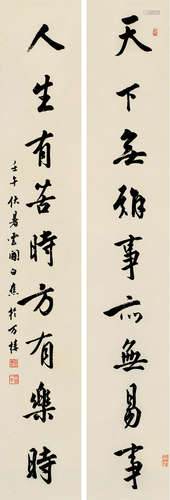 天下無難事亦無易事
人生有苦時方有樂時
壬午伏暑雲間白蕉於